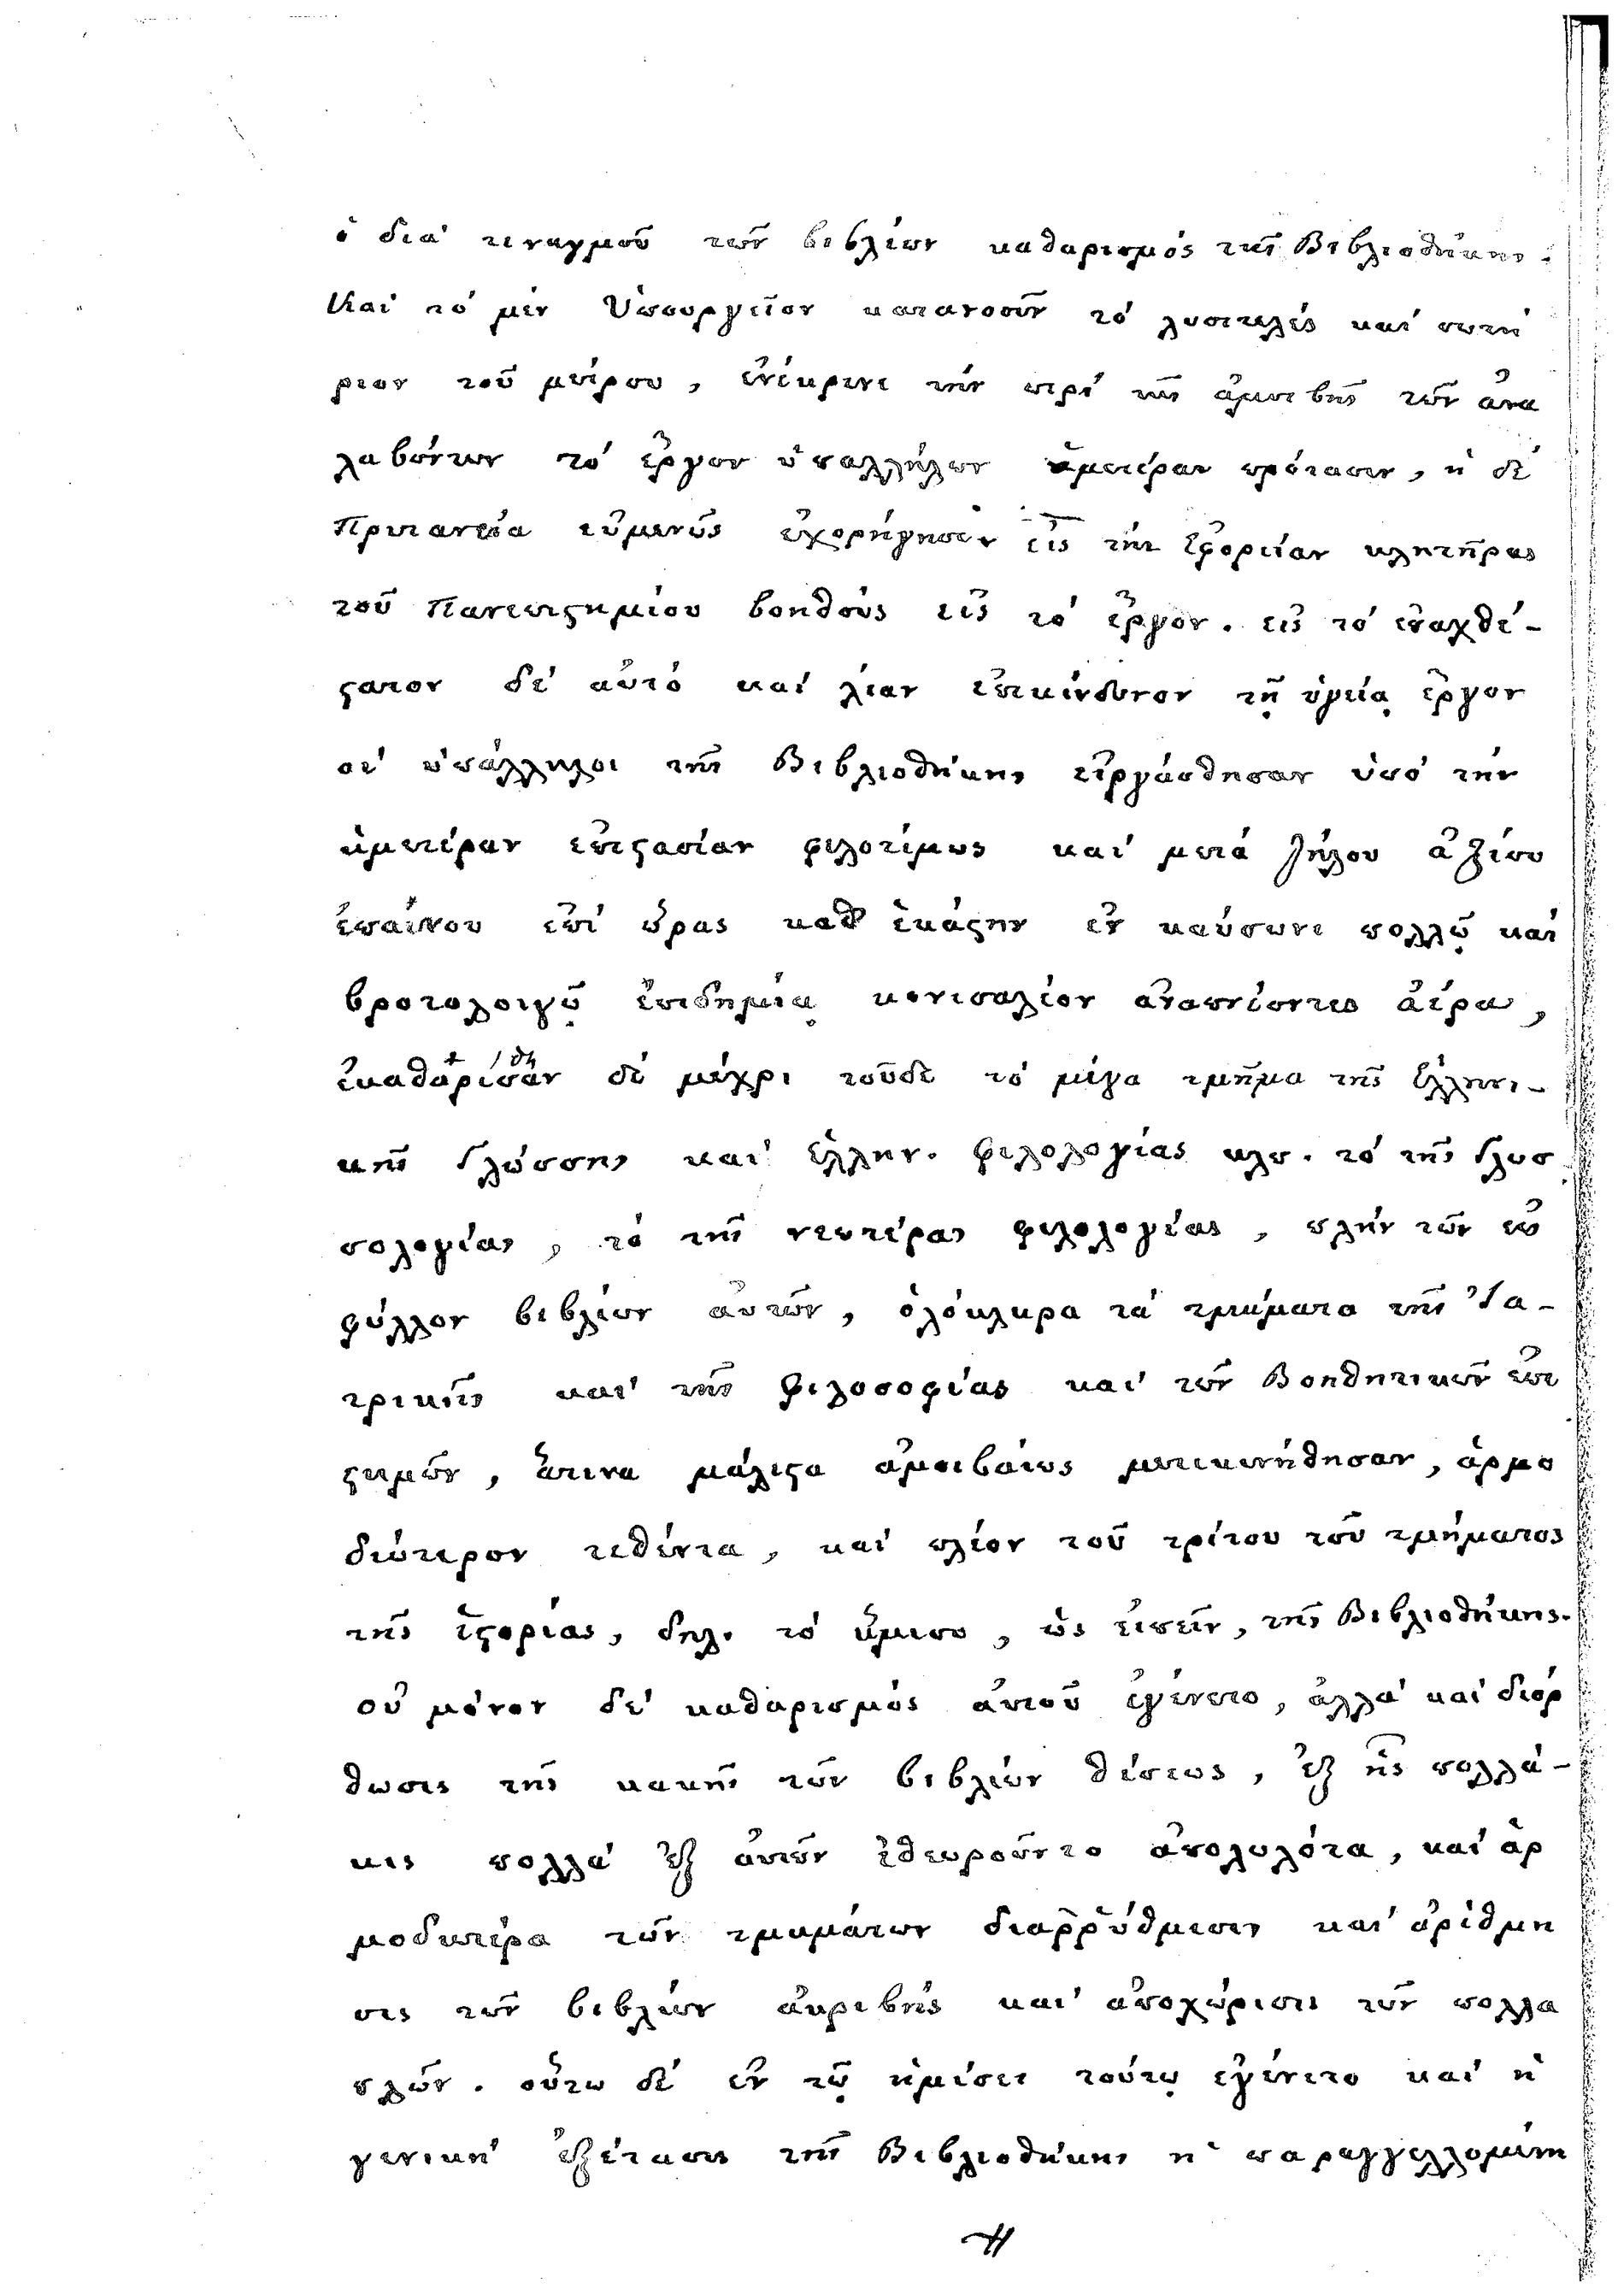 ὁ διὰ τιναγμοῦ τῶν βιβλίων καθαρισμὸς τῆς Βιβλιοθήκης.
Καὶ τὸ μὲν Ὑπουργεῖον κατανοοῦν τὸ λυσιτελὲς καὶ σωτή
ριον τοῦ μέτρου, ἐνέκρινε τὴν περὶ τῆς ἀμοιβῆς τῶν ἀνα
λαβόντων τὸ ἔργον ὑπαλλήλων ἡμετέραν πρότασιν, ἡ δὲ
Πρυτανεία εὐμενῶς ἐχορήγησεν εἰς τὴν ἐφορείαν κλητῆρας
τοῦ Πανεπιστημίου βοηθοὺς εἰς τὸ ἔργον. εἰς τὸ ἐπαχθέ-
στατον δὲ αὐτὸ καὶ λίαν ἐπικίνδυνον τῇ ὑγείᾳ ἔργον
οἱ ὑπάλληλοι τῆς Βιβλιοθήκης εἰργάσθησαν ὑπὸ τὴν
ἡμετέραν ἐπιστασίαν φιλοτίμως καὶ μετὰ ζήλου ἀξίου
ἐπαίνου ἐπὶ ὥρας καθ' ἑκάστην ἐν καύσωνι πολλῷ καὶ
βροτολοιγῷ ἐπιδημίᾳ κονισαλέον ἀναπνέοντες ἀέρα,
ἐκαθαρίσθη δὲ μέχρι τοῦδε τὸ μέγα τμῆμα τῆς Ἑλληνι-
κῆς Γλώσσης καὶ ἑλλην. φιλολογίας κλπ. τὸ τῆς Γλωσ
σολογίας, τὸ τῆς νεωτέρας φιλολογίας, πλὴν τῶν εἰς
φύλλον βιβλίων αὐτῶν, ὁλόκληρα τὰ τμήματα τῆς Ἰα-
τρικῆς καὶ τῆς φιλοσοφίας καὶ τῶν Βοηθητικῶν ἐπι
στημῶν, ἅτινα μάλιστα ἀμοιβαίως μετεκινήθησαν, ἁρμο
διώτερον τεθέντα, καὶ πλέον τοῦ τρίτου τοῦ τμήματος
τῆς ἱστορίας, δηλ. τὸ ἥμισυ, ὡς εἰπεῖν, τῆς Βιβλιοθήκης.
οὐ μόνον δὲ καθαρισμὸς αὐτοῦ ἐγένετο, ἀλλὰ καὶ διόρ
θωσις τῆς κακῆς τῶν βιβλίων θέσεως, ἐξ ἧς πολλά-
κις πολλὰ ἐξ αὐτῶν ἐθεωροῦντο ἀπολωλότα, καὶ ἁρ
μοδιωτέρα τῶν τμημάτων διαῤῥύθμισις καὶ ἀρίθμη
σις τῶν βιβλίων ἀκριβὴς καὶ ἀποχώρισις τῶν πολλα
πλῶν. οὕτω δὲ ἐν τῷ ἡμίσει τούτῳ ἐγένετο καὶ ἡ
γενικὴ ἐξέτασις τῆς Βιβλιοθήκης ἡ παραγγελλομένη